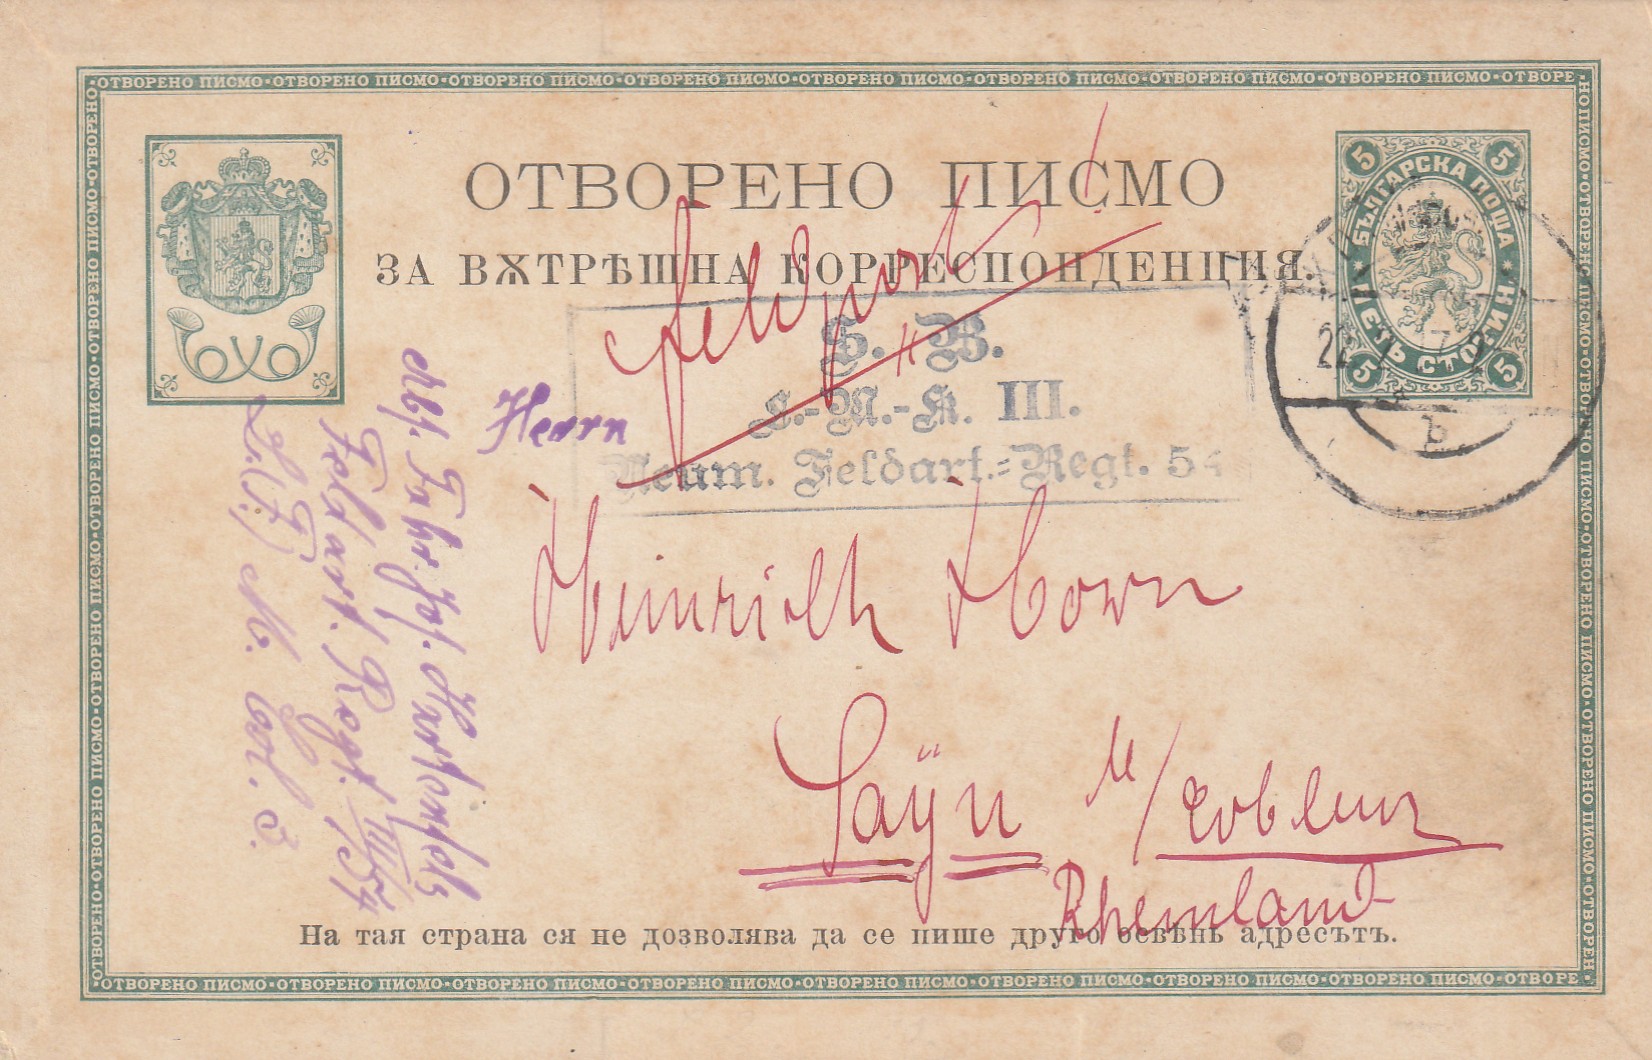 ОТВОРЕНО ПИСМО·ОТВОРЕНО ПИСМО·ОТВОРЕНО ПИСМО·ОТВОРЕНО ПИСМО·ОТВОРЕНО ПИСМО·ОТВОРЕНО ПИСМО·ОТВОРЕНО ПИСМО·ОТВОРЕНО ПИСМО·ОТВОРЕ
ОТВОРЕНО ПИСМО
ЗА ВѪТРѢШНА КОРРЕСПОНДЕНЦИЯ.
5 5
БЪЛГАРСКА ПОЩА
ПЕТЬ СТОТИН.
5 5
Feldpost
S. B.
L.-M.-K. III.
Neum. Feldart.-Regt. 54
b
Herrn
Heinrich Horn
Sayn b/Coblenz
Rheinland
Abs. Fahr.
Feldart. Regt. 54
На тая страна ся не дозволява да се пише друго освѣнь адресътъ.
ОТВОРЕНО ПИСМО·ОТВОРЕНО ПИСМО·ОТВОРЕНО ПИСМО·ОТВОРЕНО ПИСМО·ОТВОРЕНО ПИСМО·ОТВОРЕНО ПИСМО·ОТВОРЕНО ПИСМО·ОТВОРЕНО ПИСМО·ОТВОРЕ